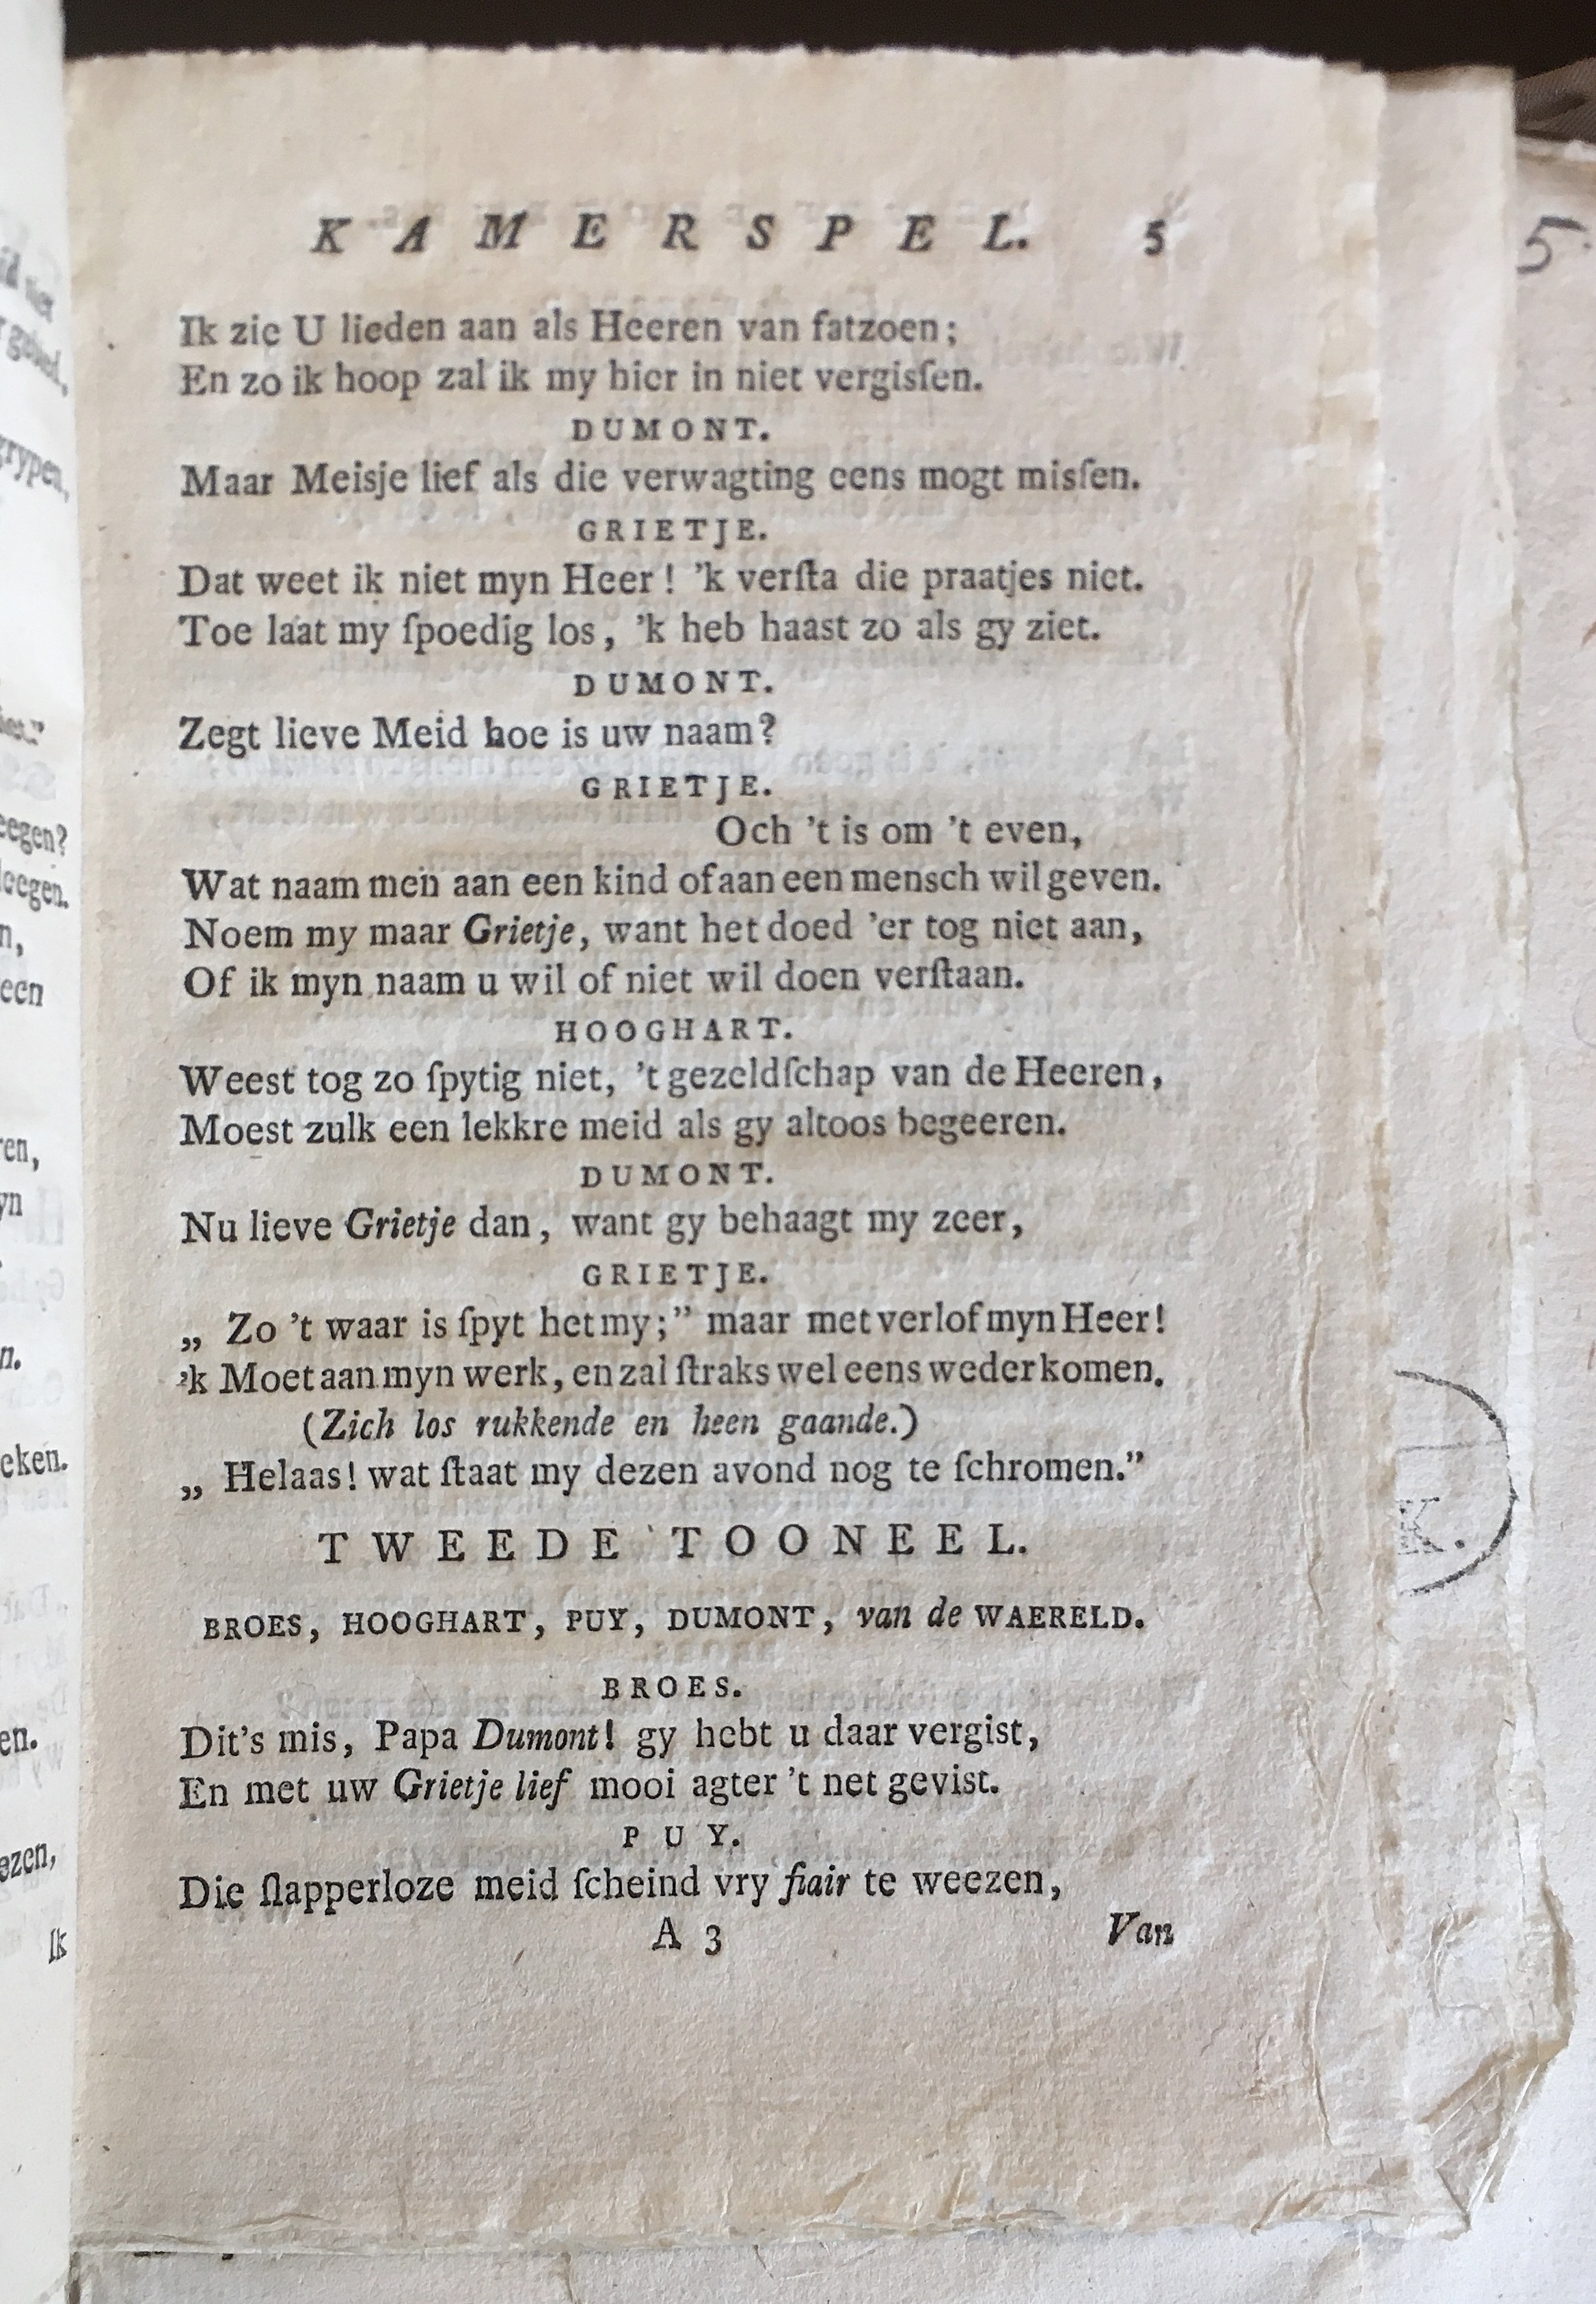 KAMERSPEL. 5
Ik zie U lieden aan als Heeren van fatzoen;
En zo ik hoop zal ik my hier in niet vergisſen.
DUMONT.
Maar Meisje lief als die verwagting eens mogt misſen.
GRIETJE.
Dat weet ik niet myn Heer! 'k verſta die praatjes niet.
Toe laat my ſpoedig los, 'k heb haast zo als gy ziet.
DUMONT.
Zegt lieve Meid hoe is uw naam?
GRIETJE.
Och 't is om 't even,
Wat naam men aan een kind of aan een mensch wil geven.
Noem my maar Grietje, want het doed 'er tog niet aan,
Of ik myn naam u wil of niet wil doen verſtaan.
HOOGHART.
Weest tog zo ſpytig niet, 't gezeldſchap van de Heeren,
Moest zulk een lekkre meid als gy altoos begeeren.
DUMONT.
Nu lieve Grietje dan, want gy behaagt my zeer,
GRIETJE.
„ Zo 't waar is ſpyt het my;” maar met verlof myn Heer!
'k Moet aan myn werk, en zal ſtraks wel eens wederkomen.
(Zich los rukkende en heen gaande.)
„ Helaas! wat ſtaat my dezen avond nog te ſchromen.”
TWEEDE TOONEEL.
BROES, HOOGHART, PUY, DUMONT, van de WAERELD.
BROES.
Dit's mis, Papa Dumont! gy hebt u daar vergist,
En met uw Grietje lief mooi agter 't net gevist.
PUY.
Die ſlapperloze meid ſcheind vry fiair te weezen,
A 3 Van
5.
K.